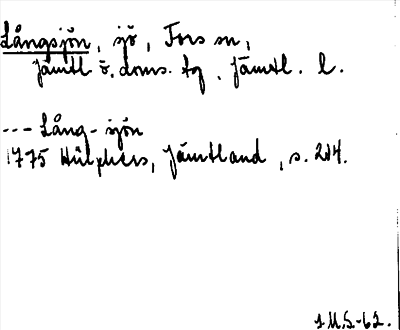 Långsjön, sjö, Fors sn,
Jämtl ö. doms. tg, Jämtl. l.
--- Lång-sjön
1775 Hülphers, Jämtland, s. 214.
1 U.S-62.